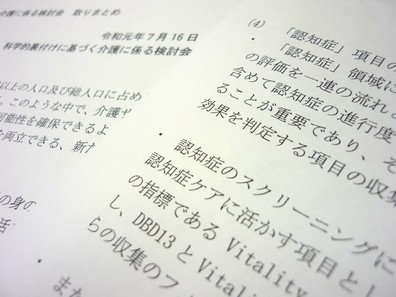 介護に係る検討会 取りまとめ
令和元年7月16日
科学的裏付けに基づく介護に係る検討会
以上の人口及び総人口に占め
。このような中で、介護サ
可能性を確保できるよ
を両立できる、新た
の身の
活
(4) 「認知症」項目の
・ 「認知症」領域に
の評価を一連の流れ
含めて認知症の進行度
ることが重要であり、そ
効果を判定する項目の収集
・ 認知症のスクリーニングに
認知症ケアに活かす項目とし
の指標である Vitality
し、DBD13 と Vitality
らの収集のフ
・ また